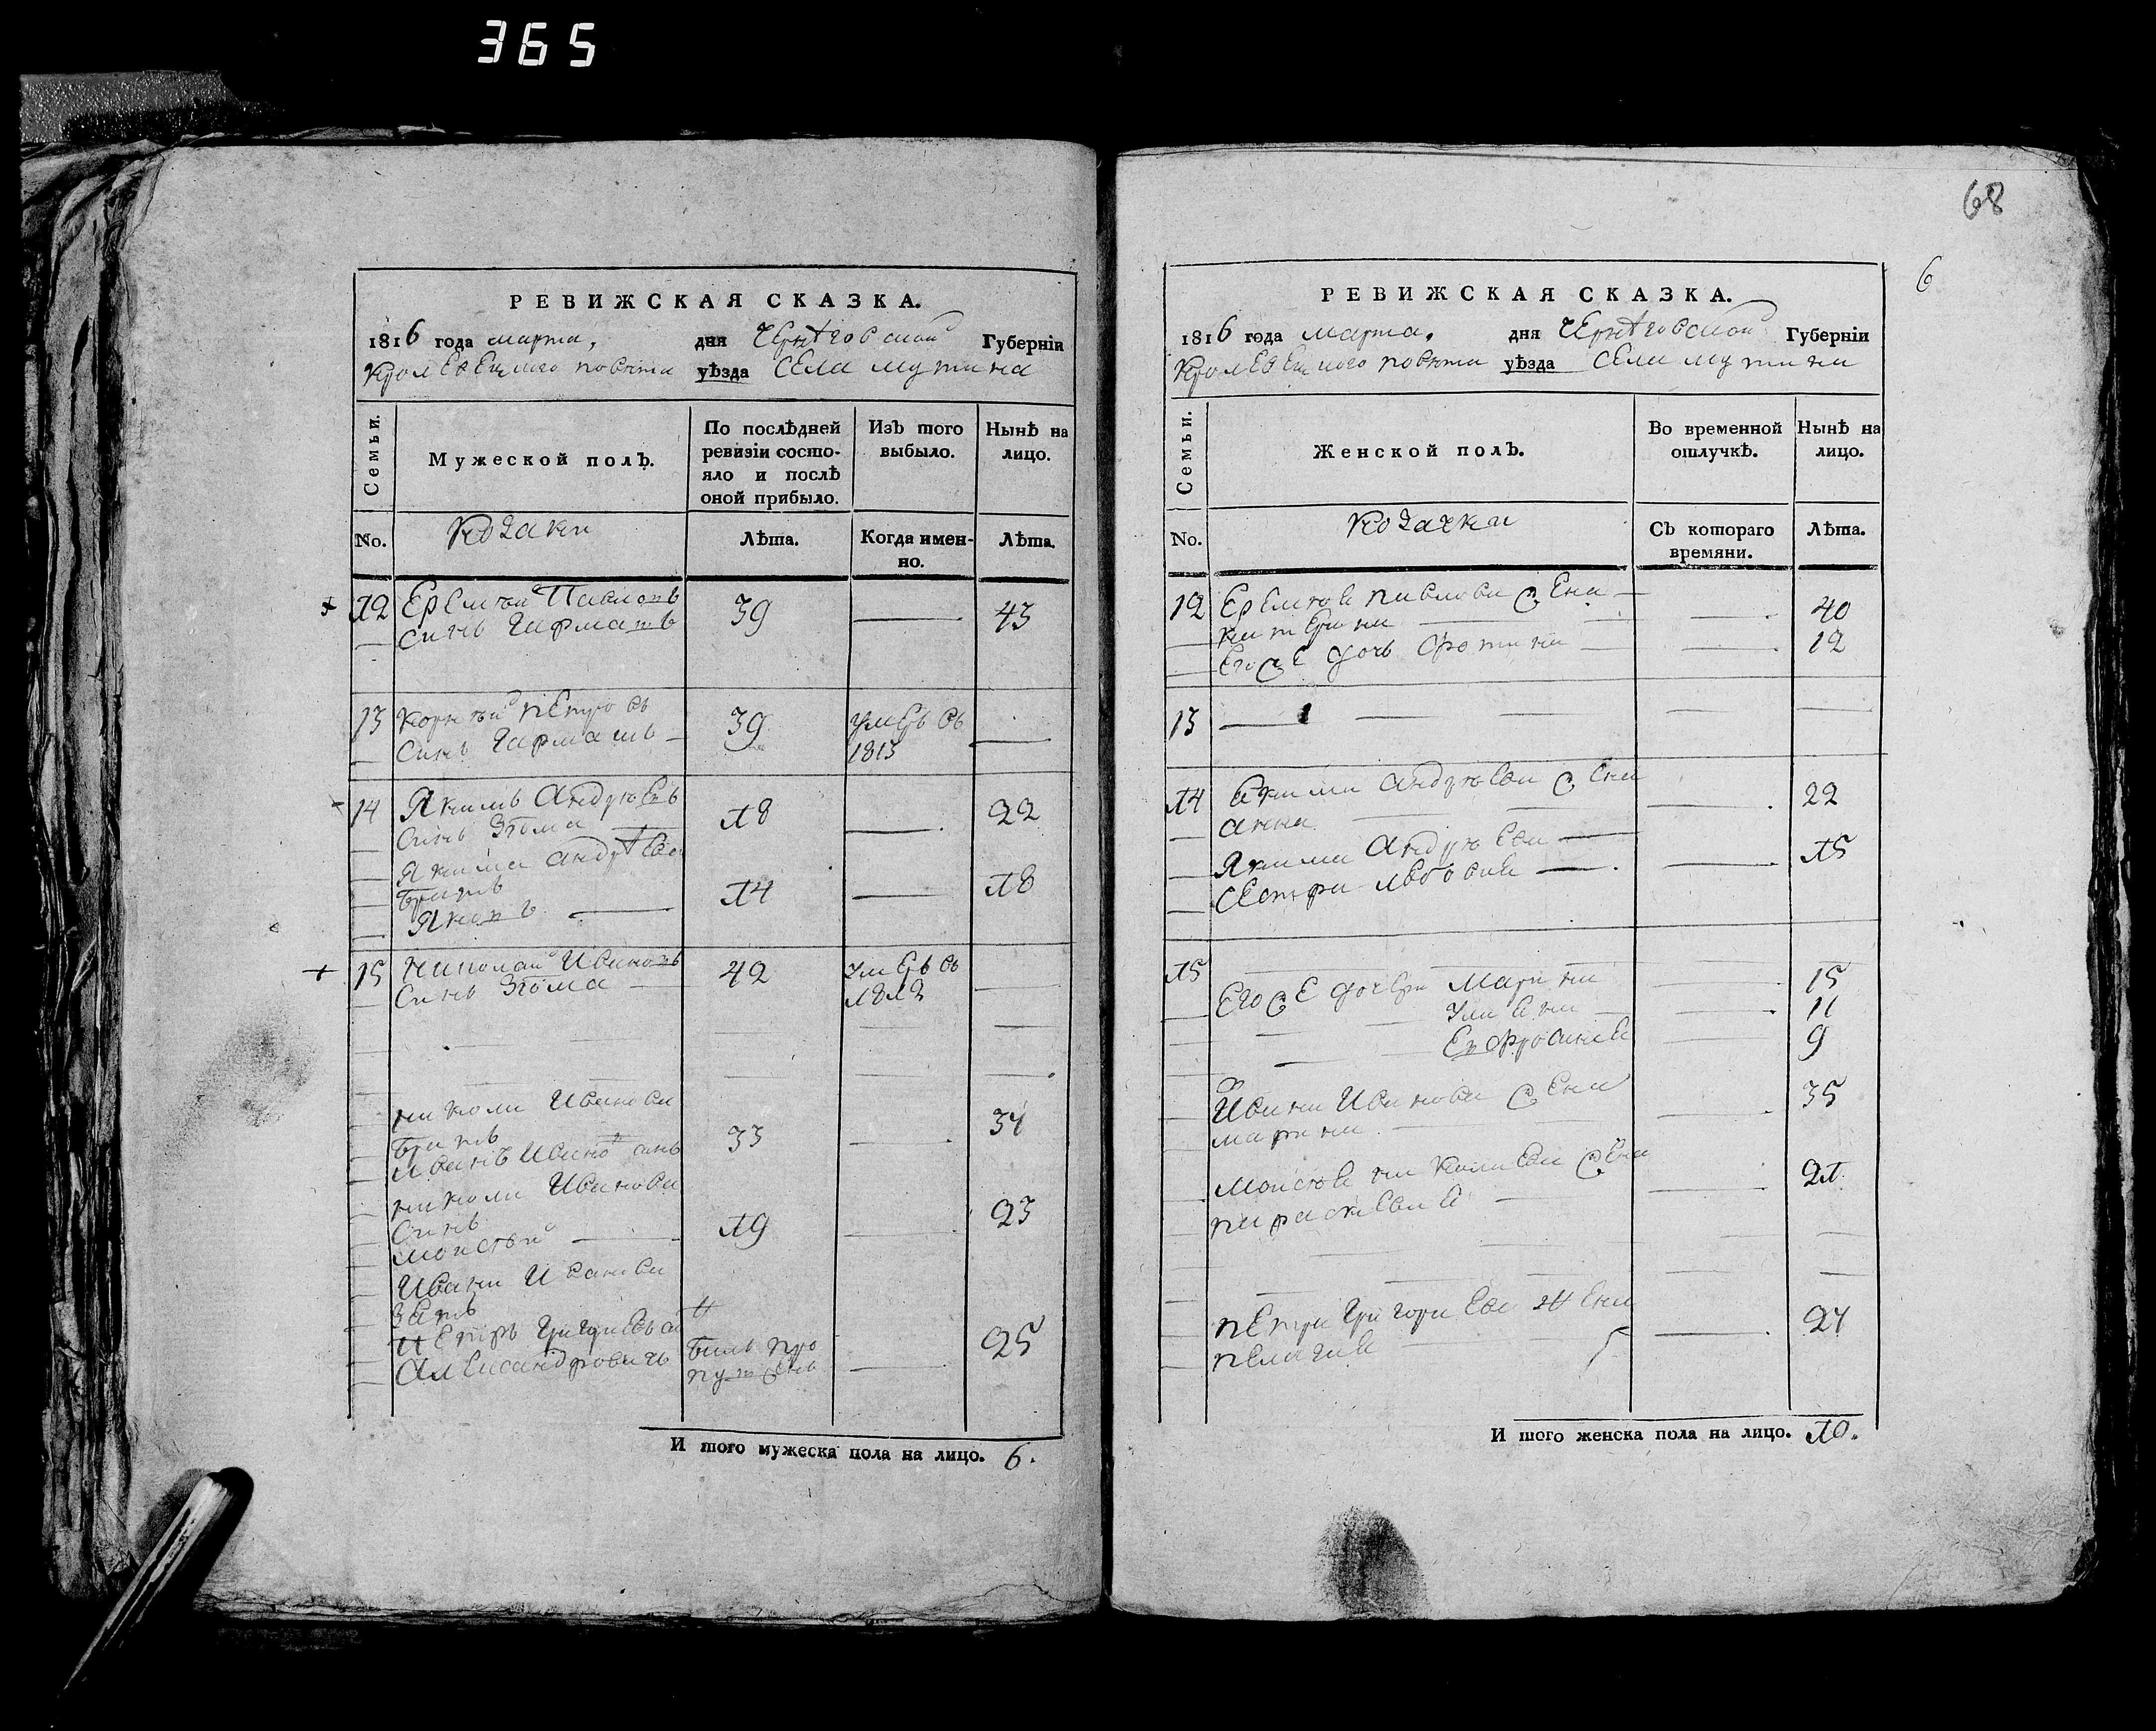 365
РЕВИЖСКАЯ СКАЗКА.
1816 года марта, дня Чернѣговской Губерніи
Кролевецкого повѣта уѣзда села мутина
Семьи.
Мужеской полъ.
По послѣдней
ревизіи состо-
яло и послѣ
оной прибыло.
Изъ того
выбыло.
Нынѣ на
лицо.
No.
козаки
Лѣта.
Когда имен-
но.
Лѣта.
12 Еремѣй Павловъ
синъ Гармашъ 39 43
13 Корнѣй Петровъ
синъ Гармашъ 39 умеръ въ
1813
14 Якимъ Андрѣевъ
синъ 18 22
Якима Андрѣева
братъ
Яковъ 14 18
15 Николай Ивановъ 42 умеръ въ
синъ 1812
николи Иванова
братъ
Иванъ Ивановъ синъ 33 37
николи Иванова
синъ
Моисѣй 19 23
Ивана Иванова
зять
Петръ Григориевъ син
Александровичъ билъ про
пущенъ 25
И того мужеска пола на лицо. 6.
68
6
РЕВИЖСКАЯ СКАЗКА.
1816 года марта. дня Чернѣговской Губерніи
Кролевецкого повѣта уѣзда села мутина
Семьи.
Женской полъ.
Во временной
отлучкѣ.
Нынѣ на
лицо.
No.
козачки
Съ котораго
времяни.
Лѣта.
12 Еремѣя павлова жена
катерина 40
его же дочь фотина 12
13
14 Якима Андрѣева жена
анна 22
Якима Андрѣева
сестра 15
15 Его же дочери Марина 15
Улияна 11
Евфросиния 9
Ивана Иванова жена
марина 35
Моисѣя николаева жена
параскевия 21
петра григориева жена
пелагия 24
И того женска пола на лицо. 10.